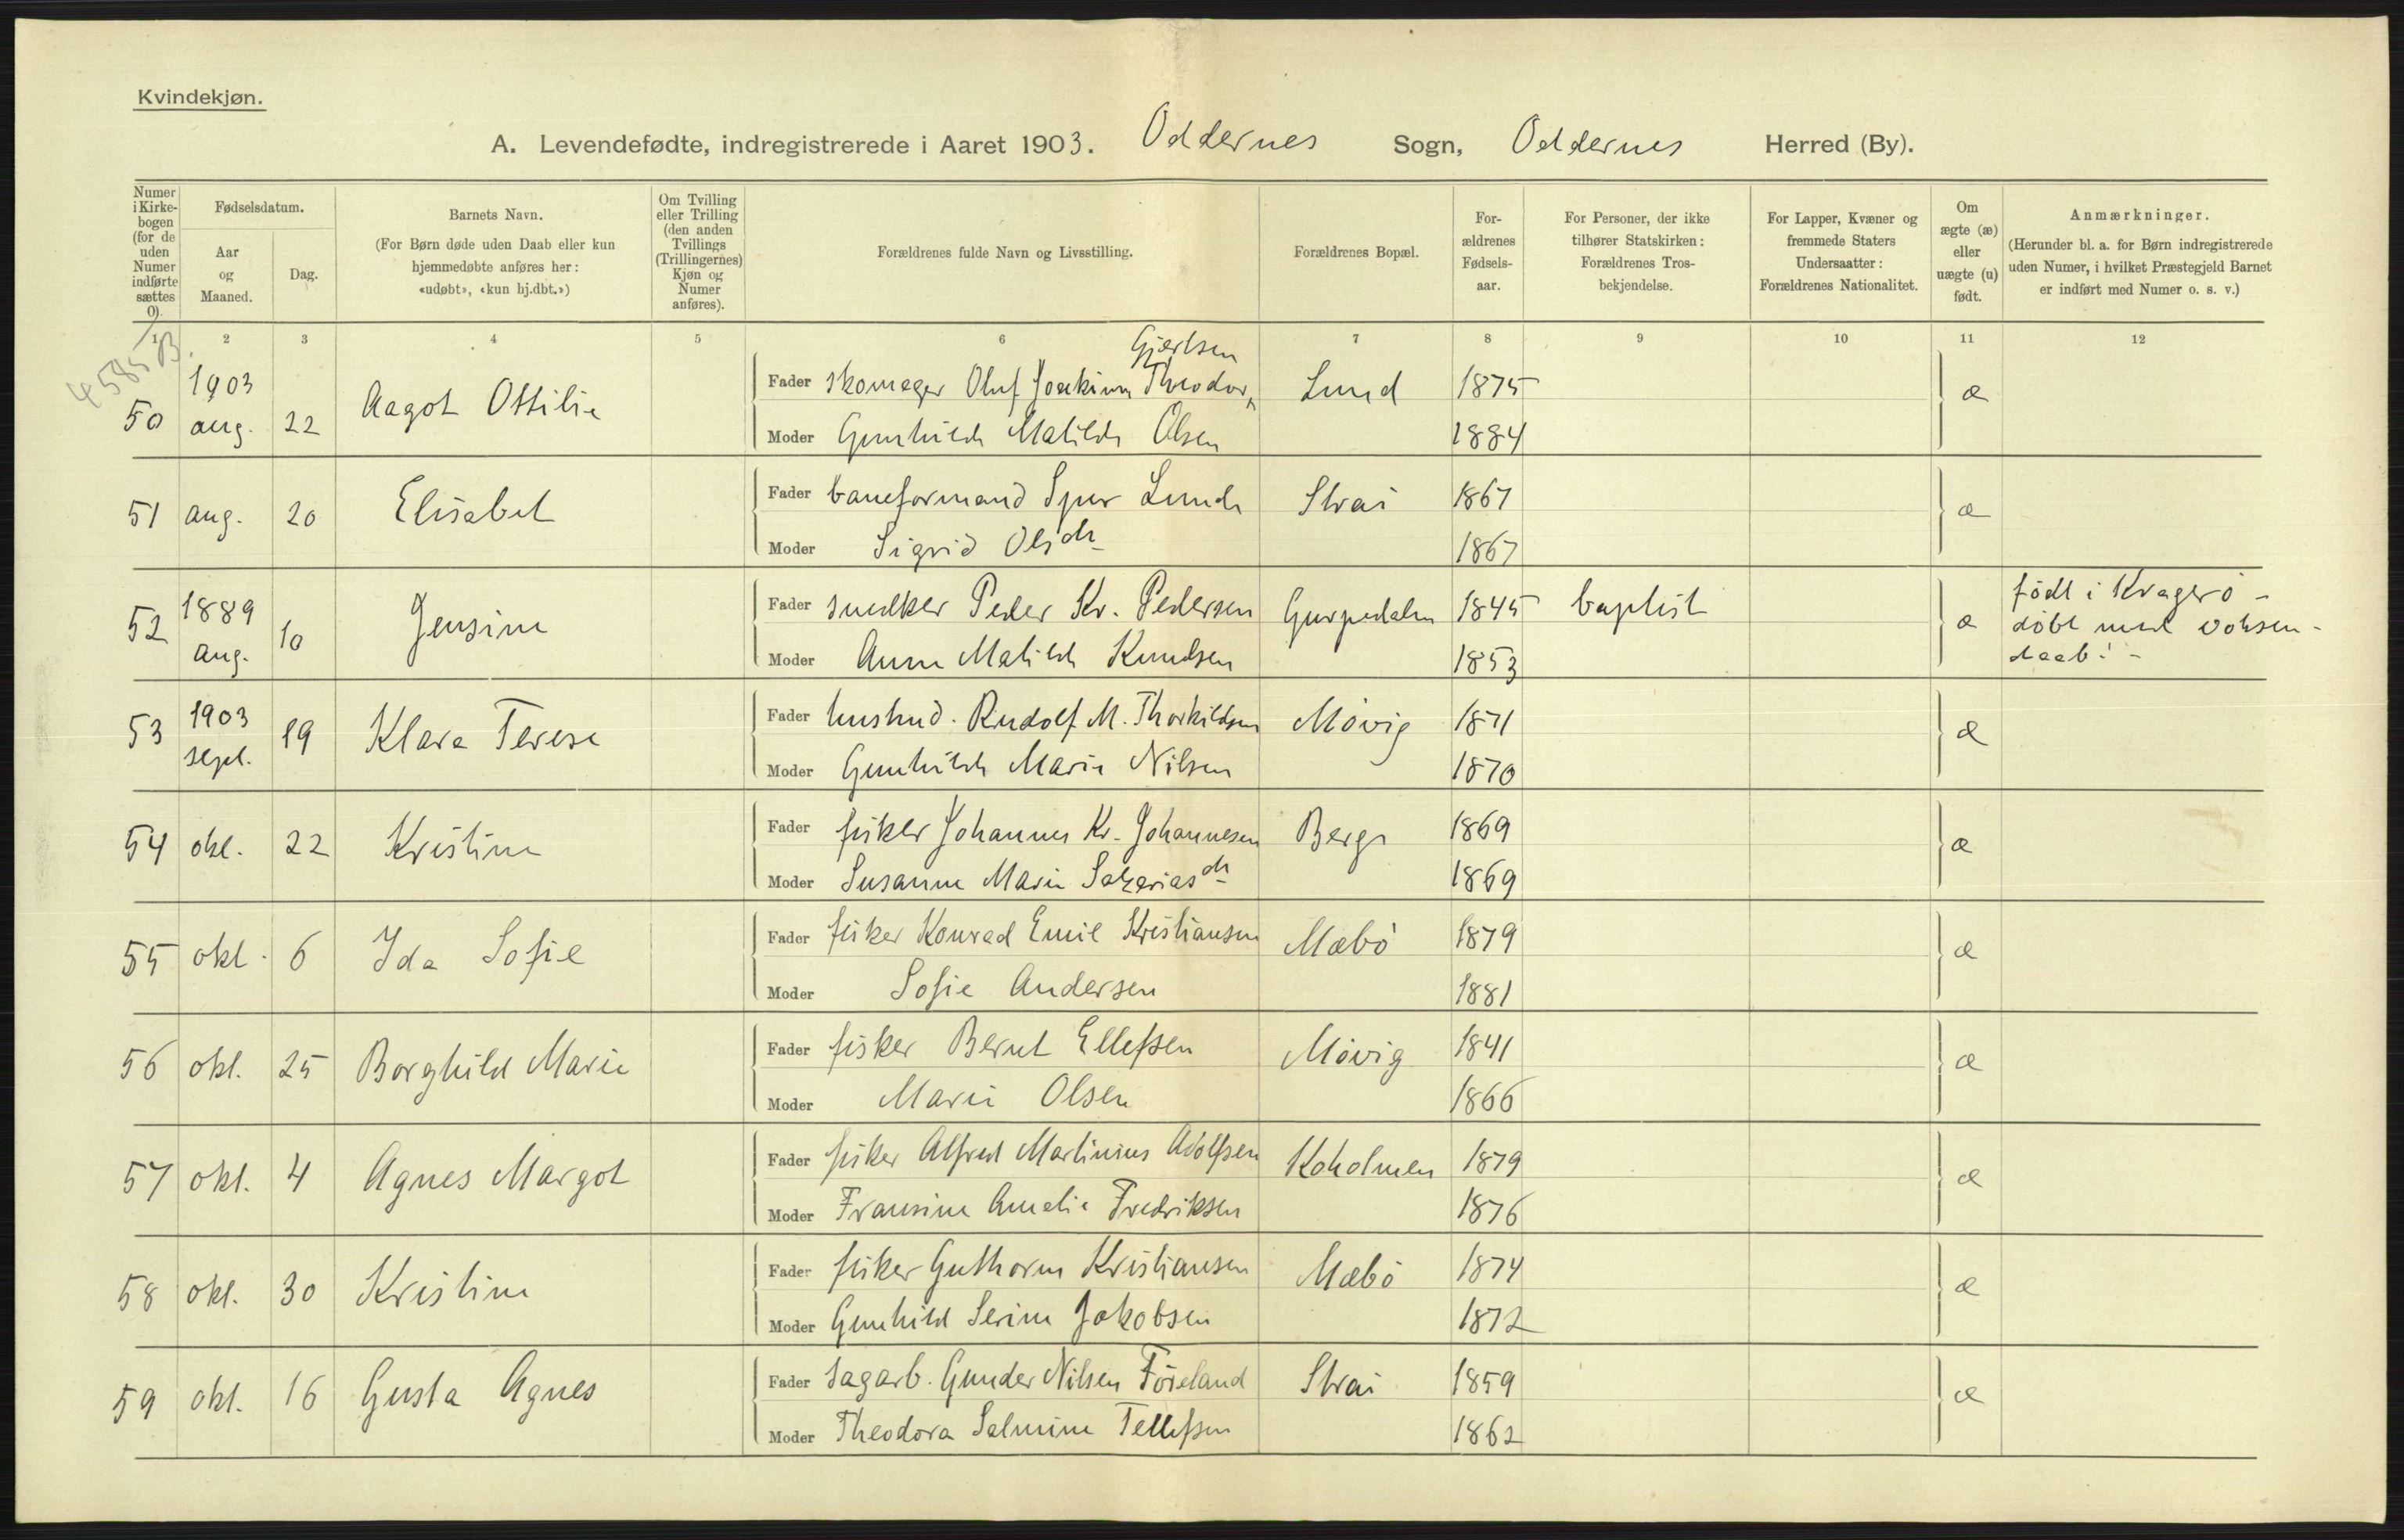 Kvindekjøn.
A. Levendefødte, indregistrerede i Aaret 1903. Oddernes Sogn, Oddernes Herred (By).
Numer i Kirkebogen (for de uden Numer indførte sættes 0).
Fødselsdatum.
Aar og Maaned.
Dag.
Barnets Navn.
(For Børn døde uden Daab eller kun hjemmedøbte anføres her: «udøbt», «kun hj.dbt.»)
Om Tvilling eller Trilling (den anden Tvillings (Trillingernes) Kjøn og Numer anføres).
Forældrenes fulde Navn og Livsstilling.
Forældrenes Bopæl.
Forældrenes Fødselsaar.
For Personer, der ikke tilhører Statskirken: Forældrenes Trosbekjendelse.
For Lapper, Kvæner og fremmede Staters Undersaatter: Forældrenes Nationalitet.
Om ægte (æ) eller uægte (u) født.
Anmærkninger.
(Herunder bl. a. for Børn indregistrerede uden Numer, i hvilket Præstegjeld Barnet er indført med Numer o. s. v.)
1 2 3 4 5 6 7 8 9 10 11 12
4585 B.
50 1903 aug. 22 Aagot Ottilie Fader skomager Oluf Joakim Theodor Gjertsen Lund 1875 æ
Moder Gunhilde Matilde Olsen 1884
51 aug. 20 Elisabet Fader baneformand Sjur Lunde Strai 1867 æ
Moder Sigrid Olsdtr 1867
52 1889 aug. 10 Jensine Fader snedker Peder Kr. Pedersen 1845 baptist æ født i Kragerö -
døbt med voksen-
daab! -
Moder Anne Matilde Knudsen 1853
53 1903 sept. 19 Klara Terese Fader husmd. Rudolf M. Thorkildsen Móvig 1871 æ
Moder Gunhilde Marie Nilsen 1870
54 okt. 22 Kristine Fader fisker Johannes Kr. Johannesen Berge 1869 æ
Moder Susanne Marie Sakariasdtr 1869
55 okt. 6 Ida Sofie Fader fisker Konrad Emil Kristiansen Mæbö 1879 æ
Moder Sofie Andersen 1881
56 okt. 25 Borghild Marie Fader fisker Bernt Ellefsen Móvig 1841 æ
Moder Marie Olsen 1866
57 okt. 4 Agnes Margot Fader fisker Alfred Martinius Adolfsen Koholmen 1879 æ
Moder Fransine Amalie Fredriksen 1876
58 okt. 30 Kristine Fader fisker Guthorm Kristiansen Mæbö 1874 æ
Moder Gunhild Serine Jakobsen 1872
59 okt. 16 Gusta Agnes Fader sagarb. Gunder Nilsen Föreland Strai 1859 æ
Moder Theodora Salmine Tellefsen 1862